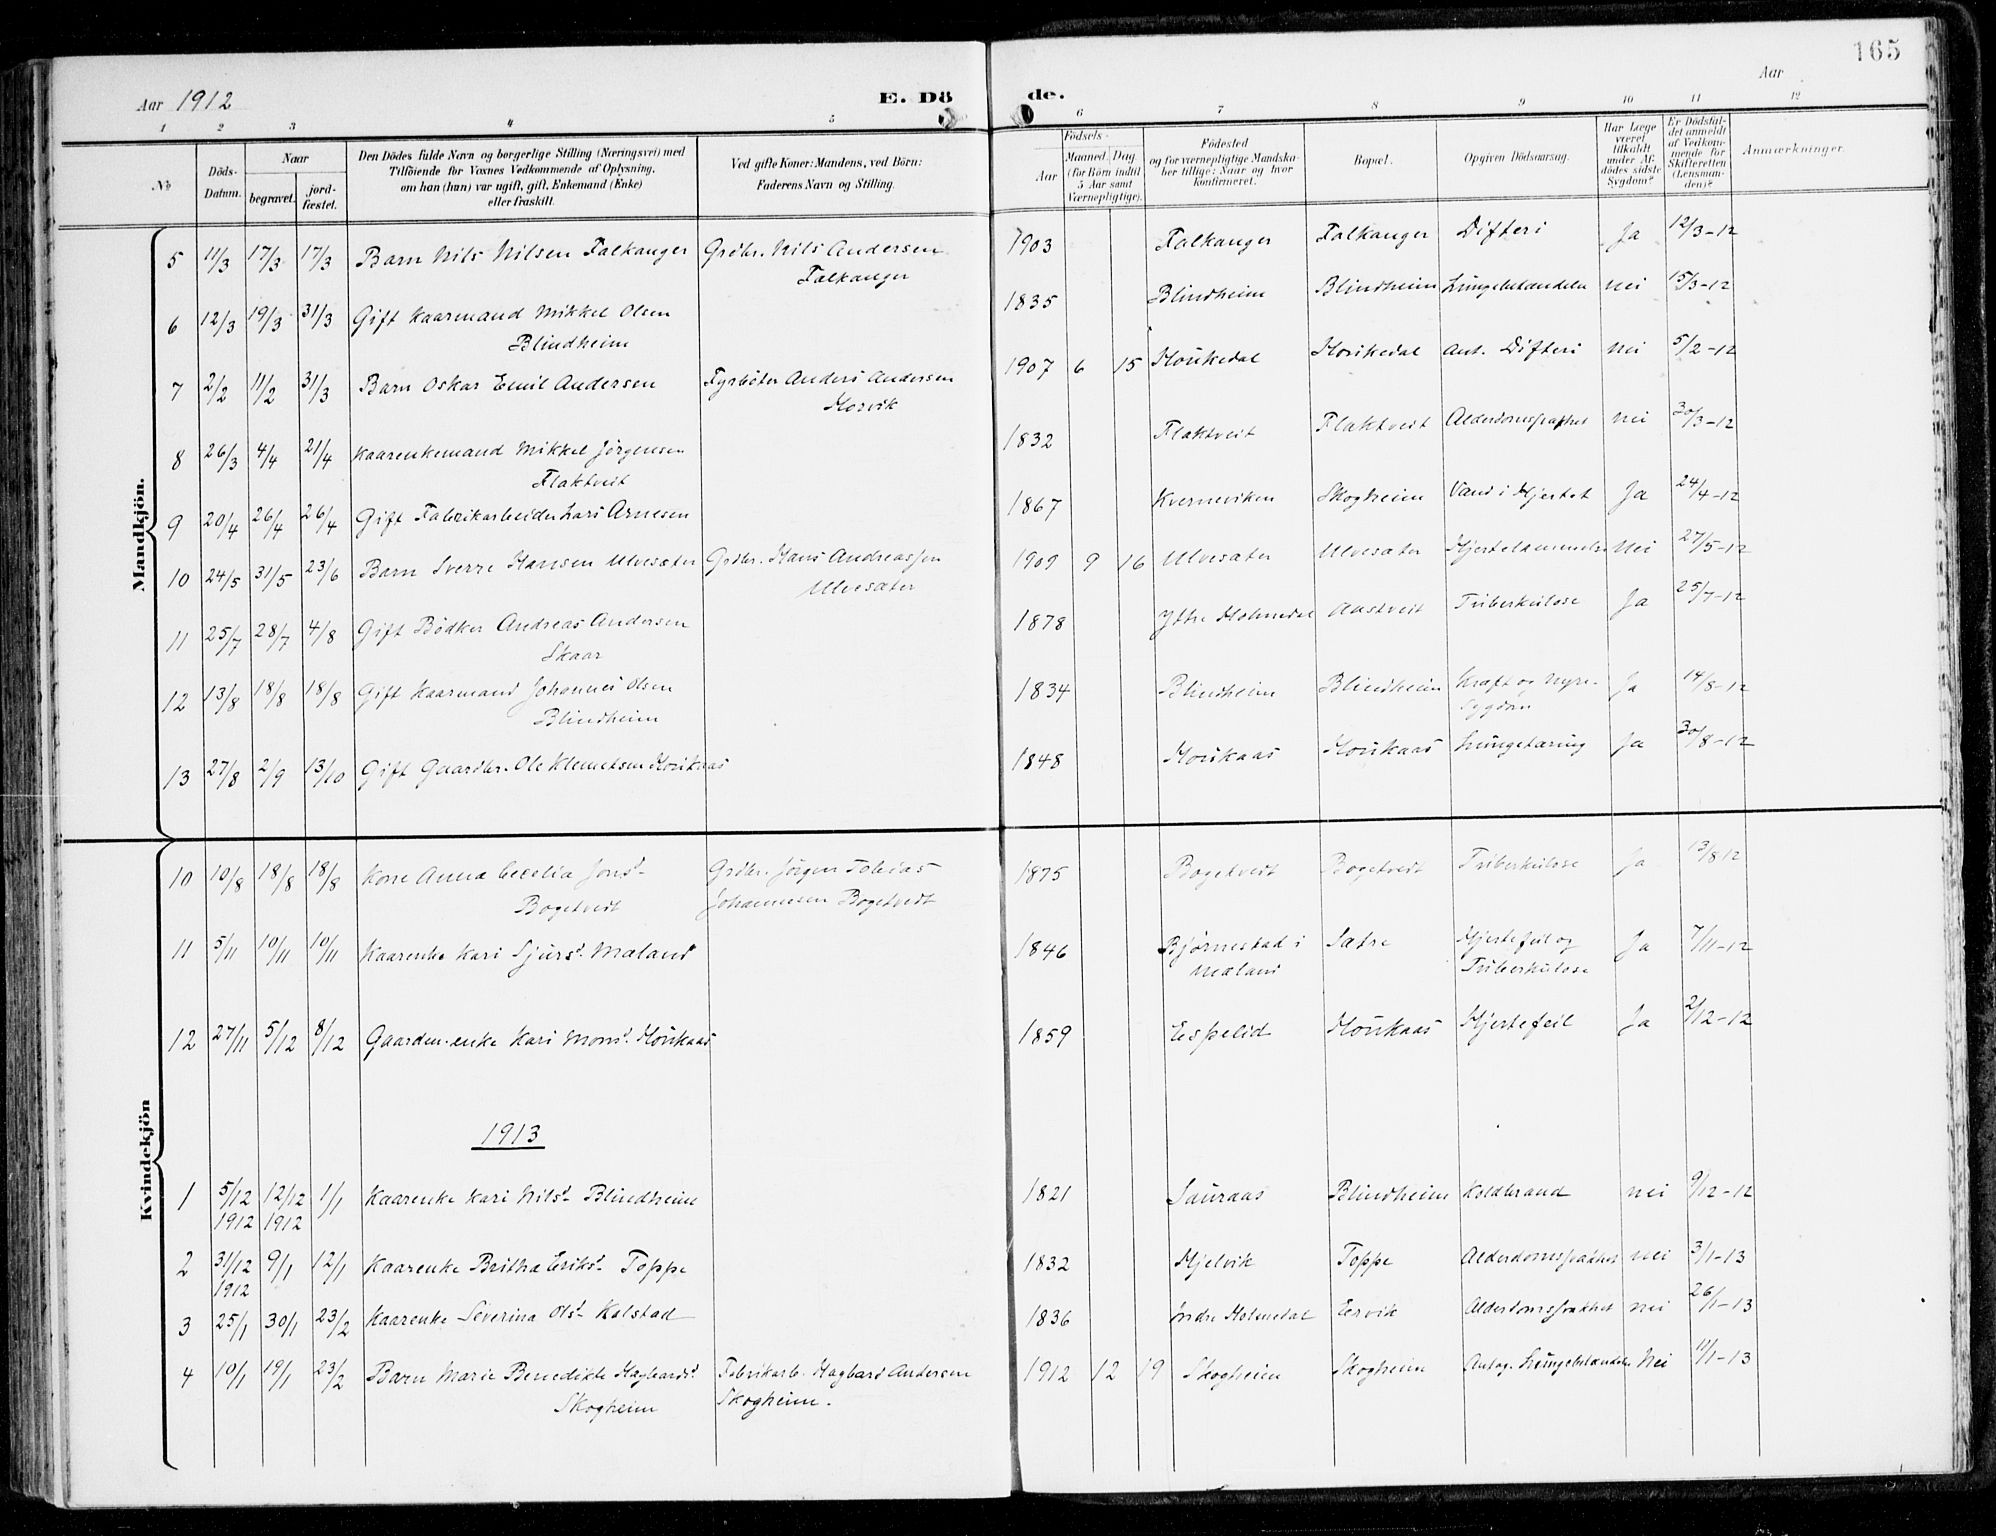 165
Aar 1912
E. Dö
de.
Aar
1 2 3 4 5
6 7 8 9 10 11 12
No
Döds-Datum.
Naar
begravet.
jord-fæstet.
Den Dödes fulde Navn og borgerlige Stilling (Næringsvei) med
Tilföiende for Voxnes Vedkommende af Oplysning,
om han (hun) var ugift, gift, Enkemand (Enke)
eller fraskilt.
Ved gifte Koner: Mandens, ved Börn:
Faderens Navn og Stilling.
Födsels-
Aar
Maaned. Dag
(for Börn indtil
5 Aar samt
Værnepligtige).
Födested
og for værnepligtige Mandska-
ber tillige: Naar og hvor
konfirmeret.
Bopæl.
Opgiven Dödsaarsag.
Har Læge
været
tilkaldt
under Af-
dödes sidste
Sygdom?
Er Dödsfal-
det anmeldt
af Vedkom-
mende for
Skifteretten
(Lensman-
den)?
Anmærkninger.
Mandkjön.
5 11/3 17/3 17/3 Barn Nils Nilsen Falkanger Grdbr. Nils Andersen 1903 Falkanger Falkanger Difteri Ja 12/3-12
Falkanger
6 12/3 19/3 31/3 Gift Kaarmand Mikkel Olsen 1835 Blindheim Blindheim Lungebetændelse nei 15/3-12
Blindheim
7 2/2 11/2 31/3 Barn Oskar Emil Andersen Fyrbøter Anders Andersen 1907 6 15 Houkedal Houkedal Ant. Difteri nei 5/2-12
Horvik
8 26/3 4/4 21/4 Kaarenkemand Mikkel Jörgensen 1832 Flaktveit Flaktveit Alderdomssvakhet nei 30/3-12
Flaktveit
9 20/4 26/4 26/4 Gift Fabrikarbeider Lars Arnesen 1867 Kverneviken Skogheim Vand i Hjertet Ja 24/4-12
10 24/5 31/5 23/6 Barn Sverre Hansen Ulvesæter Grdbr. Hans Andreassen 1909 9 16 Ulvesæter Ulvesæter Hjertelammelse Nei 27/5-12
Ulvesæter
11 25/7 28/7 4/8 Gift Bödker Andreas Andersen 1878 Ytre Holmedal Aastveit Tuberkulose Ja 25/7-12
Skaar
12 13/8 18/8 18/8 Gift Kaarmand Johannes Olsen 1834 Blindheim Blindheim Kræft og nyre- Ja 14/8-12
Blindheim sygdom
13 27/8 2/9 13/10 Gift Gaardbr. Ole Klemetsen Houkaas 1848 Houkaas Houkaas Lungetæring Ja 30/8-12
Kvindekjön
10 10/8 18/8 18/8 Kone Anna Cecelia Jonsd. Grdbr. Jörgen Tobias 1875 Bogetvedt Bogetvedt Tuberkulose Ja 13/8 12
Bogetvedt Johannesen Bogetvedt
11 5/11 10/11 10/11 Kaarenke Kari Sjursd. Mæland 1846 Bjørnestad i Sætre Hjertefeil og Ja 7/11-12
Mæland Tuberkulose
12 27/11 5/12 8/12 Gaardm.enke Kari Monsd. Houkaas 1859 Espelid Houkaas Hjertefeil Ja 2/12-12
1913
1 5/12 12/12 1/1 Kaarenke Kari Nilsd. Blindheim 1821 Sauraas Blindheim Koldbrand nei 9/12-12
1912 1912
2 31/12 9/1 12/1 Kaarenke Britha Eriksd. Toppe 1832 Hjelvik Toppe Alderdomssvakhet nei 3/1-13
1912
3 25/1 30/1 23/2 Kaarenke Severina Olsd. Kolstad 1836 Indre Holmedal Eervik Alderdomssvakhet nei 26/1-13
4 10/1 19/1 23/2 Barn Marie Benedikte Hagbardsd. Fabrikarb. Hagbard Andersen 1912 12 19 Skogheim Skogheim Antag. Lungebetændelse Nei 11/1-13
Skogheim Skogheim.